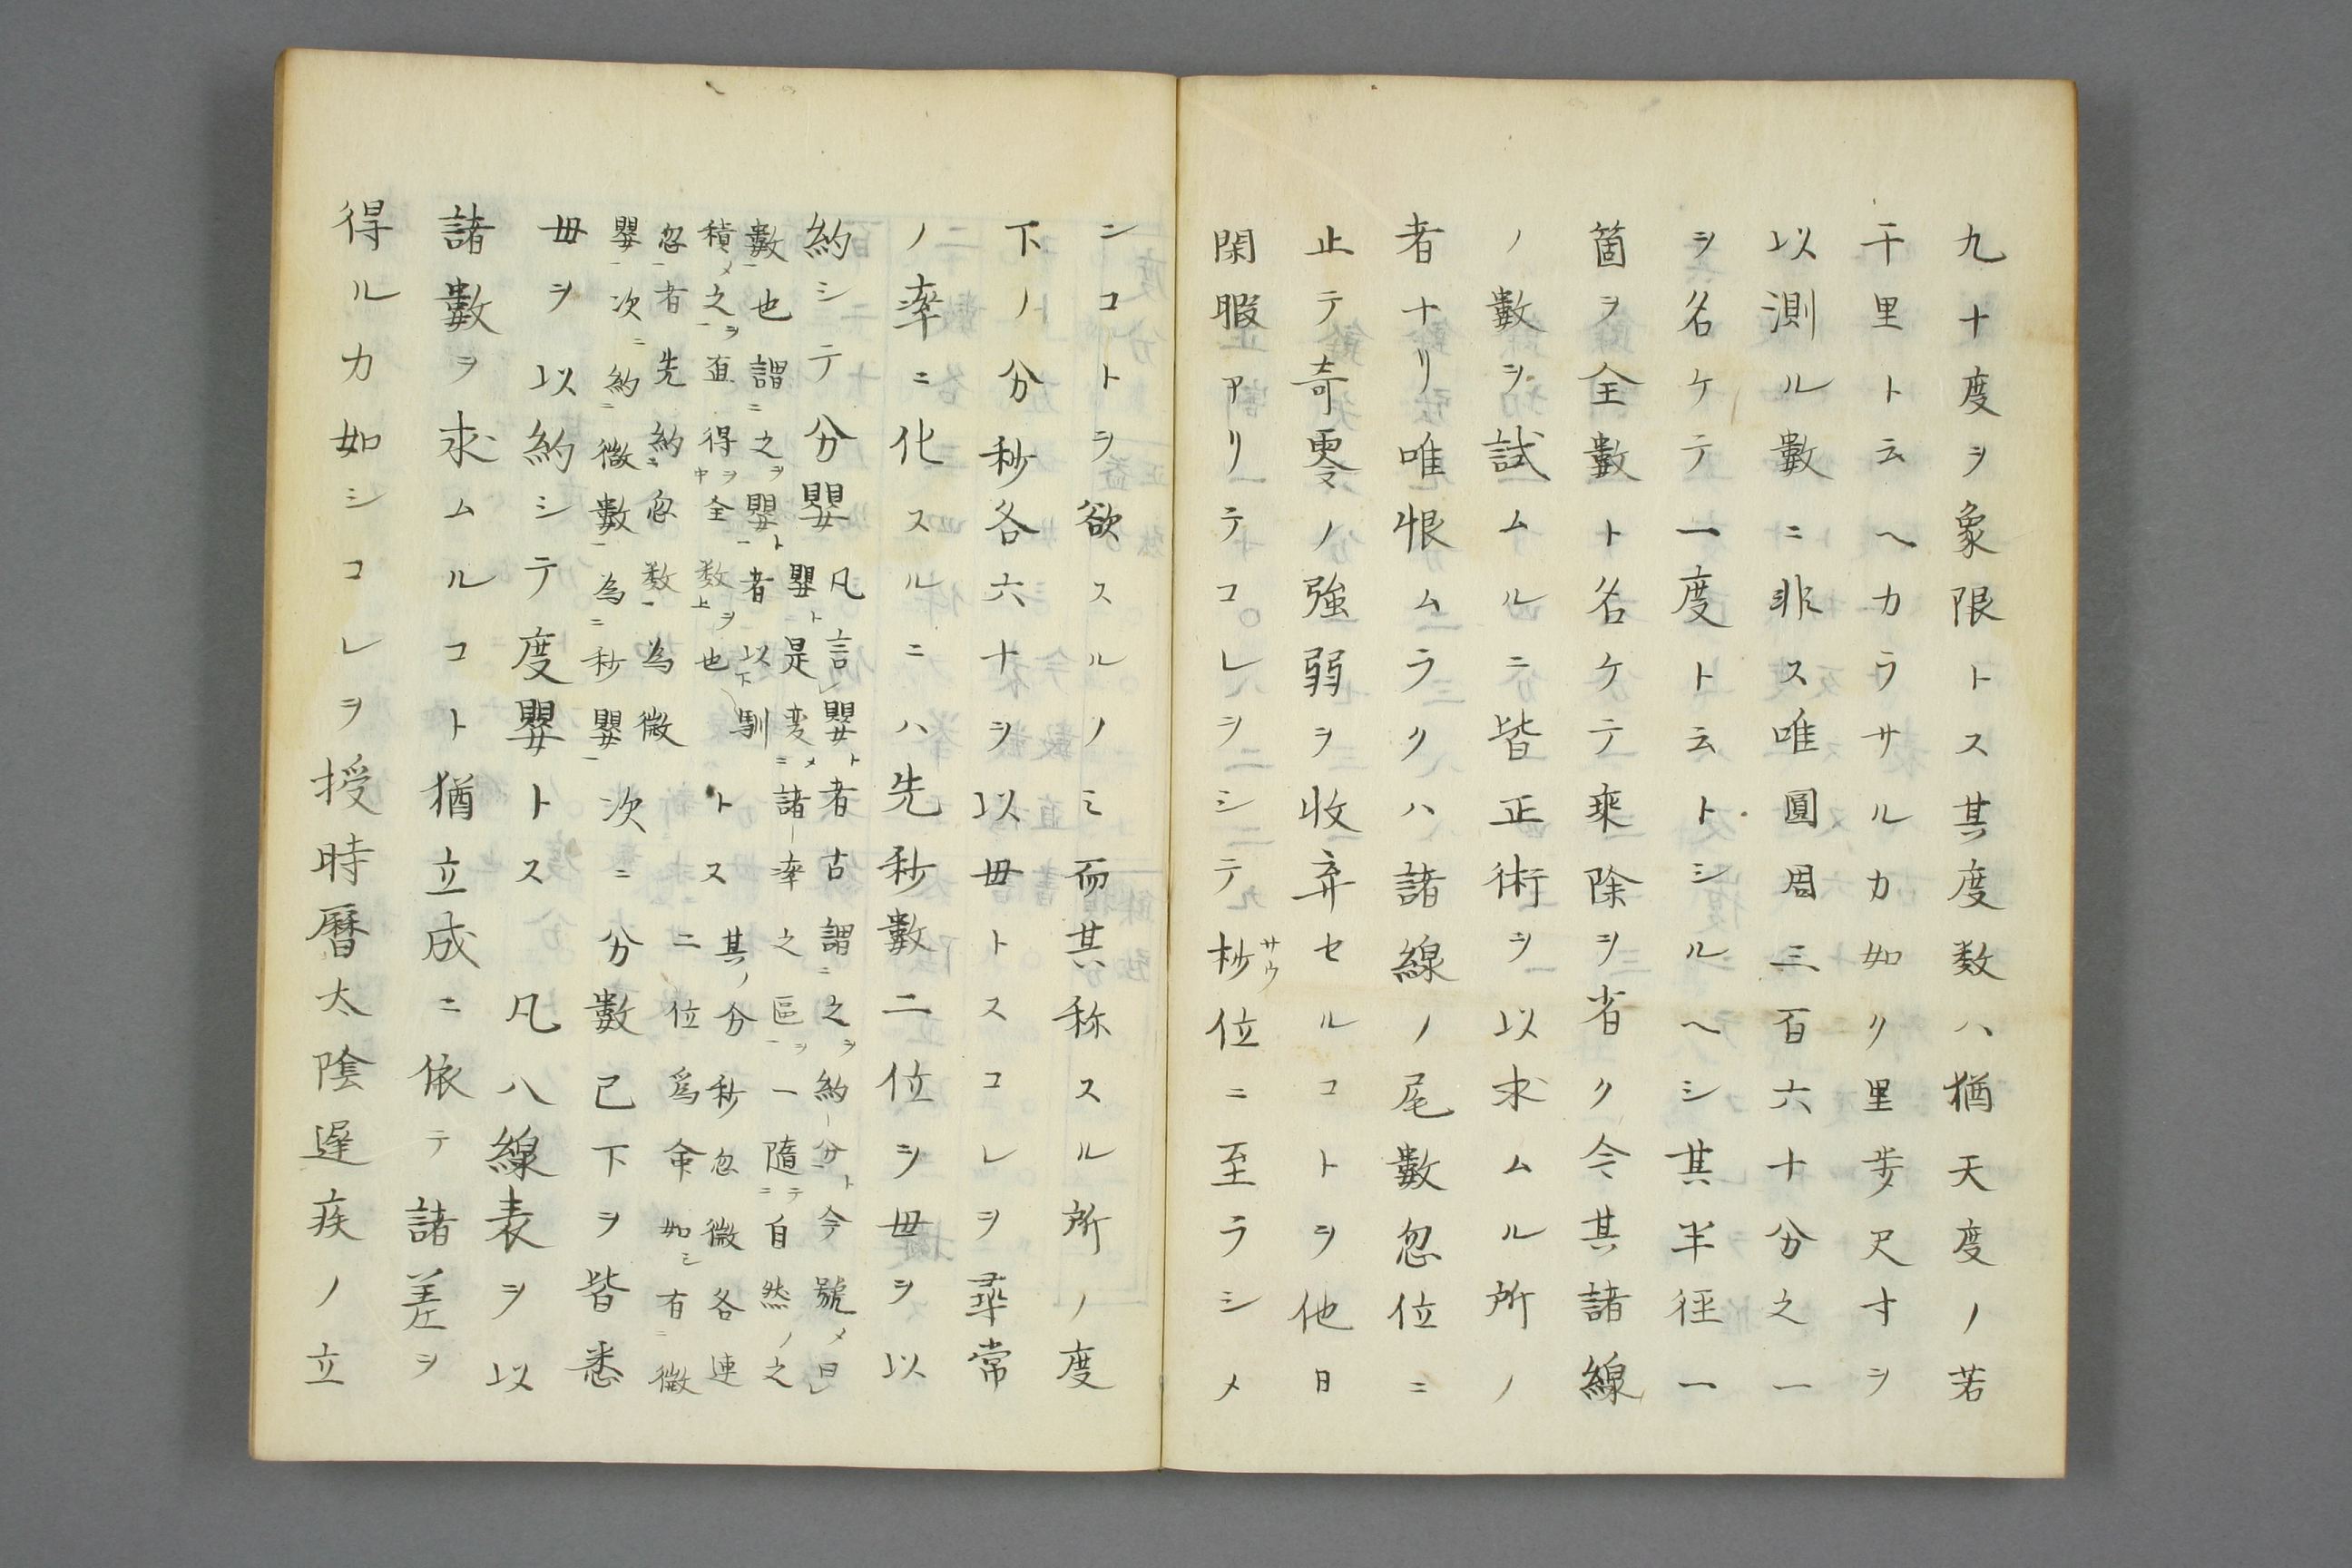 九十度ヲ象限トス其度数ハ猶天度ノ若
干里ト云ヘカラサルカ如ク里歩尺寸ヲ
以測ル數ニ非ス唯圓周三百六十分之一
ヲ名ケテ一度ト云トシルヘシ其半徑一
箇ヲ全數ト名ケテ乗除ヲ省ク今其諸線
ノ數ヲ試ムルニ皆正術ヲ以求ムル所ノ
者ナリ唯恨ムラクハ諸線ノ尾數忽位ニ
止テ奇零ノ強弱ヲ收弃セルコトヲ他日
閑暇アリテコレヲシテ杪サウ位ニ至ラシメ
ンコトヲ欲スルノミ而其称スル所ノ度
下ノ分秒各六十ヲ以毋トスコレヲ尋常
ノ率ニ化スルニハ先秒數二位ヲ毋ヲ以
約シテ分嬰
凡言嬰ト者古謂之ヲ約分ト今號メ曰
嬰ト是変メ諸率之區ヲ一隨テ自然ノ之
數也謂之ヲ嬰ト者以馴
積メ之ヲ直得ヲ全数ヲ也
トス
其ノ分秒忽微各連
二位爲命如シ有微
忽者先約忽数為微
嬰次ニ約微數為秒嬰
次ニ分數已下ヲ皆悉
毋ヲ以約シテ度嬰トス凡八線表ヲ以
諸數ヲ求ムルコト猶立成ニ依テ諸差ヲ
得ルカ如シコレヲ授時暦太陰遅疾ノ立